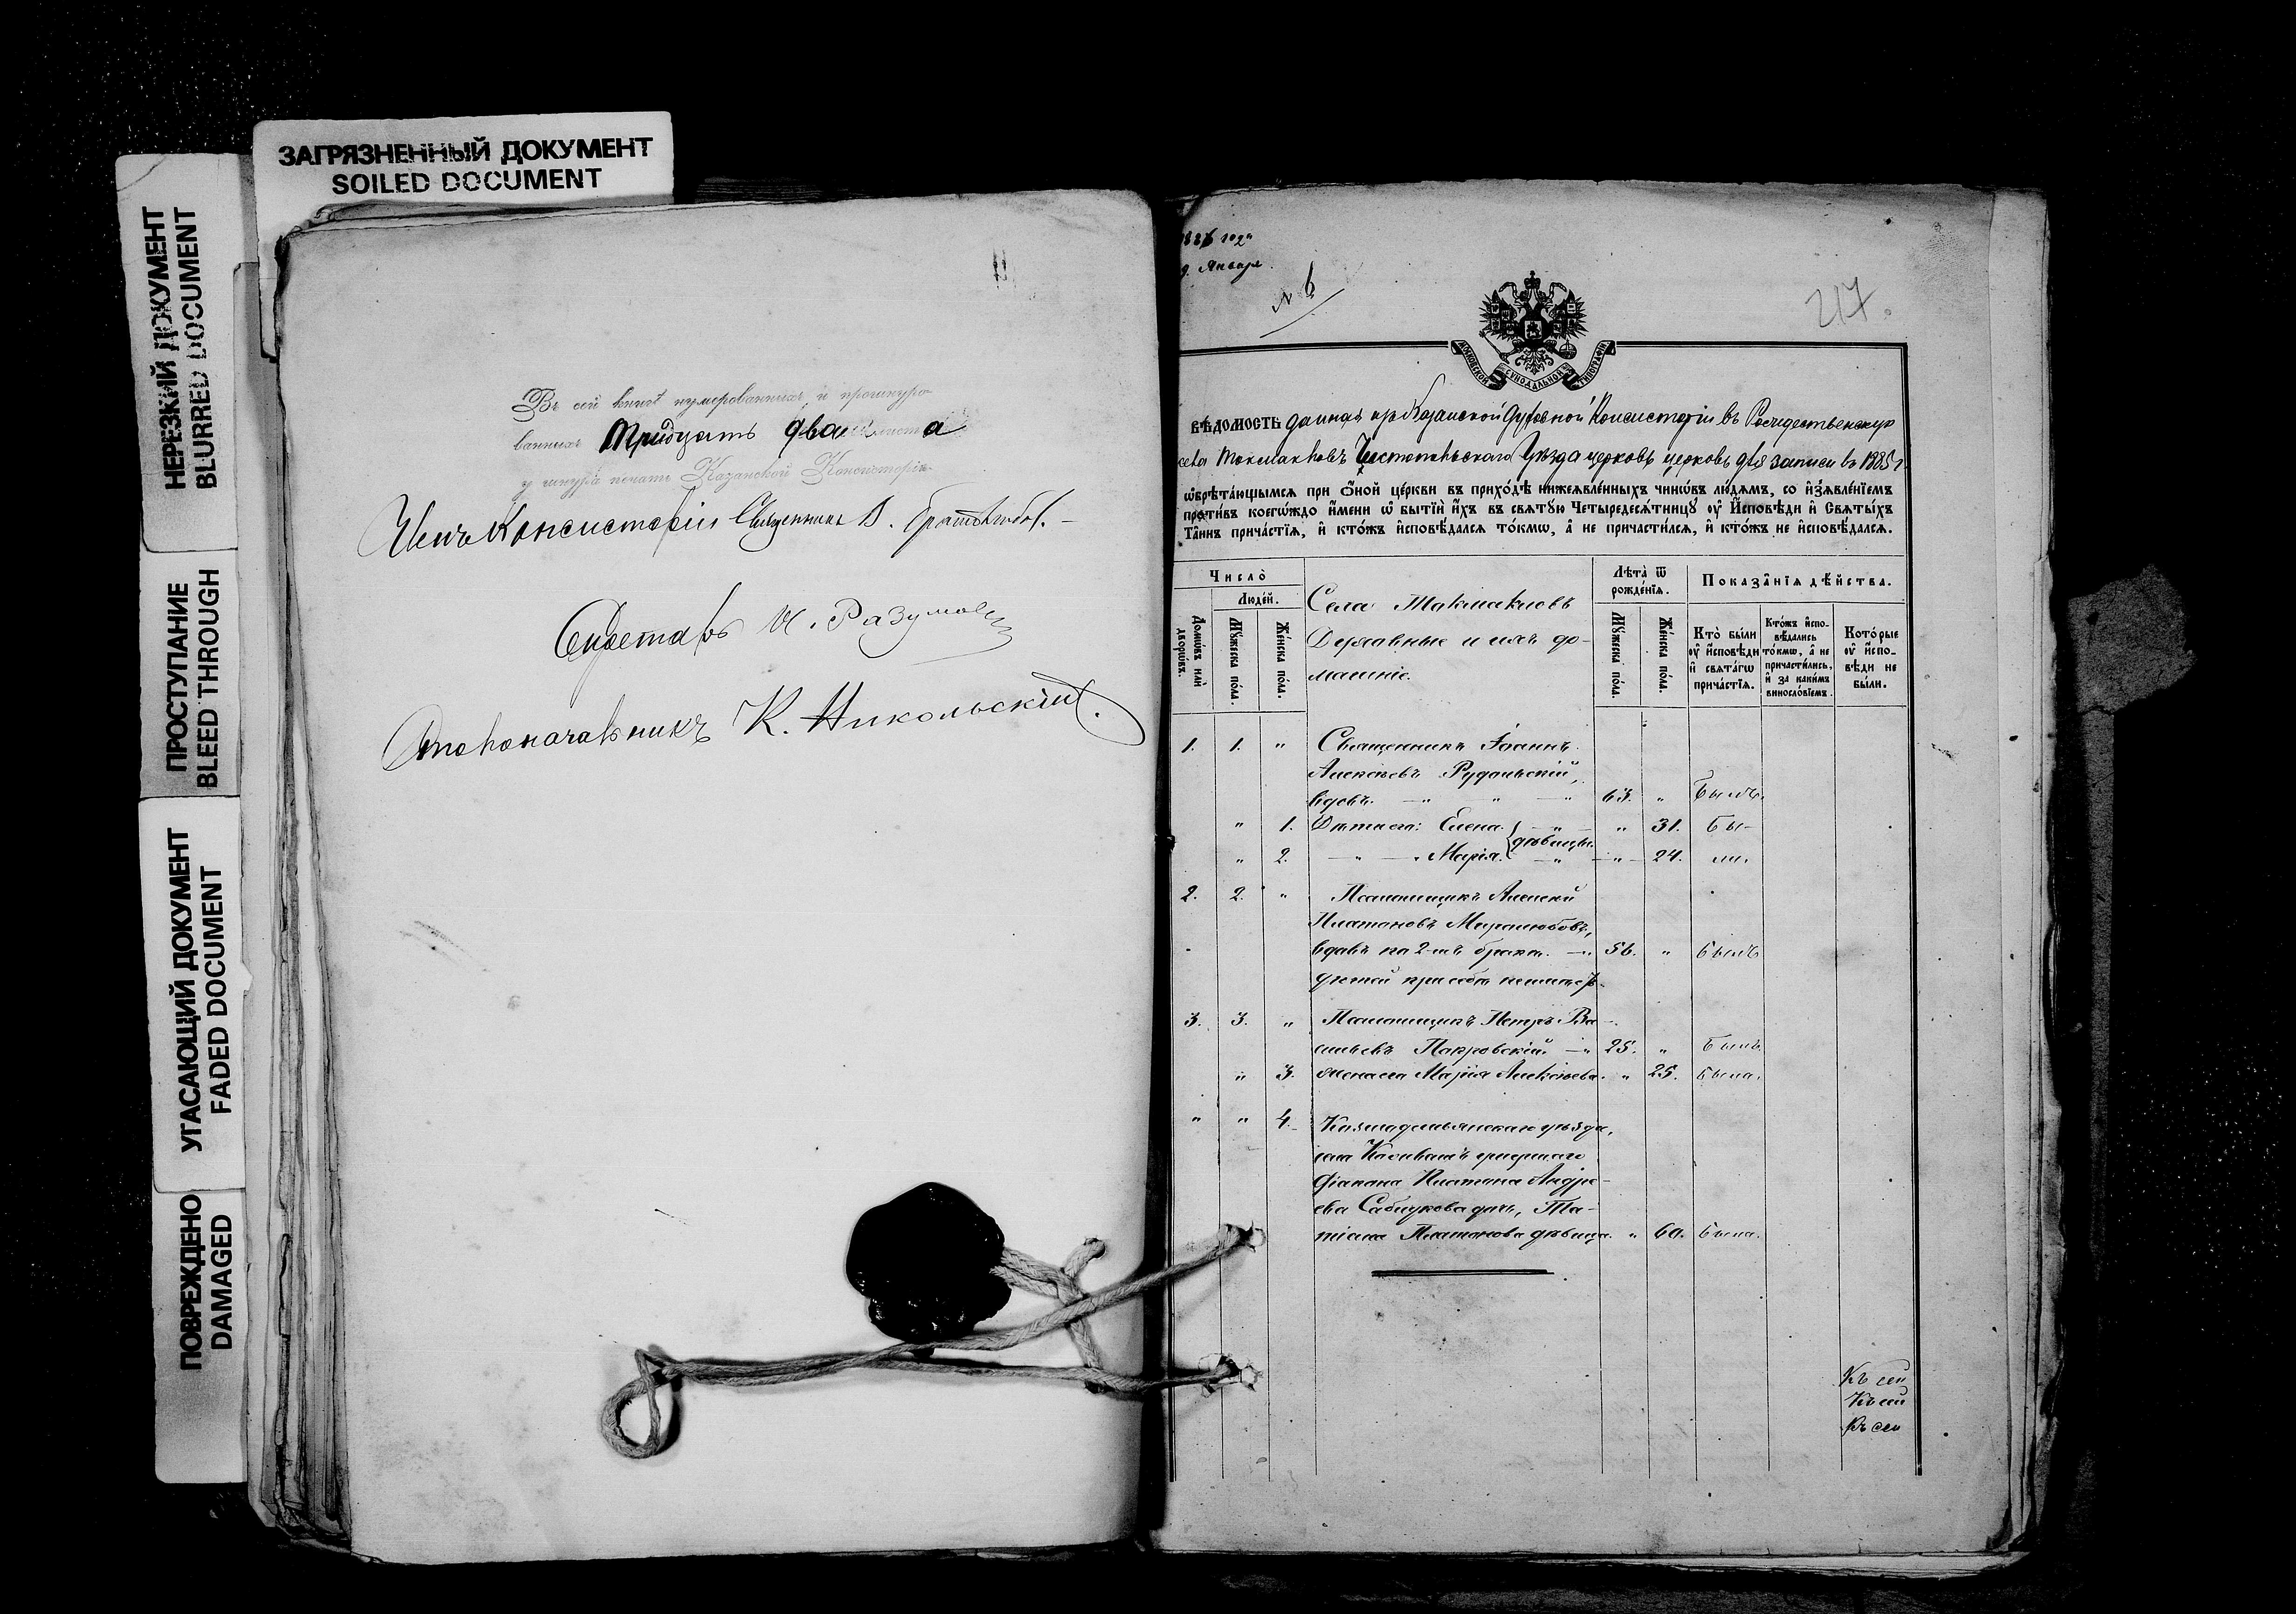 ЗАГРЯЗНЕННЫЙ ДОКУМЕНТ
SOILED DOCUMENT
НЕРЕЗКИЙ ДОКУМЕНТ
BLURRED DOCUMENT
ПРОСТУПАНИЕ
BLEED THROUGH
УГАСАЮЩИЙ ДОКУМЕНТ
FADED DOCUMENT
ПОВРЕЖДЕНО
DAMAGED
Въ сей книгѣ нумерованныхъ и прошнуро-
ванныхъ Тридцать два листа
у шнура печать Казанской Консисторіи
Членъ Консисторіи Священникъ
Секретарь И. Разумов
Столоначальникъ К. Никольскій.
года
9. Января
№ 6
217.
МОСКОВСКОЙ СУНОДАЛЬНОЙ ТИПОГРАФІИ
ВѢДОМОСТЬ данная изъ Казанской Духовной Консисторіи въ Рождественскую
села Токмаковъ Чистопольскаго Уѣзда церковь церковь для записи въ 1885 г
ѡбрѣта́ющымсѧ при ѻ҆́ной це́ркви въ прихо́дѣ нижеѧвле́нныхъ чинѡ́въ лю́дѧмъ, со и҆з̾ѧвле́нїемъ
про́тивъ коегѡ́ждо и҆́мени ѡ҆ бытїѝ и҆́хъ въ свѧтꙋ́ю Четыредесѧ́тницꙋ ᲂу҆ И҆́сповѣди и҆ Свѧты́хъ
Та̑инъ прича́стїѧ, и҆ кто́жъ и҆сповѣ́далсѧ то́кмѡ, а҆ не причасти́лсѧ, и҆ кто́жъ не и҆сповѣ́далсѧ.
Число̀
Люде́й.
Домѡ́въ и҆лѝ дворѡ́въ.
Мꙋ́жеска по́ла.
Же́нска по́ла.
Села Токмаковъ
Духовные и ихъ до-
машніе.
Лѣта̀ ѿ рожде́нїѧ.
Мꙋ́жеска по́ла.
Же́нска по́ла.
Показа̑нїѧ дѣ́йства.
Кто̀ бы́ли ᲂу҆ и҆́сповѣди и҆ свѧта́гѡ прича́стїѧ.
Кто́жъ и҆спо-вѣ́дались то́кмѡ, а҆ не причасти́лись, и҆ за каки́мъ винослѡ́вїемъ.
Кото́рые ᲂу҆ и҆́спо-вѣди не бы́ли.
1. 1. " Священникъ Іоаннъ
Алексѣевъ Рудольскій,
вдовъ. — " — " — " 63. " Былъ.
" 1. Дѣти его: Елена } дѣвицы " 31. Бы-
" 2. — " — " Марія. " 24. ли.
2. 2. " Псаломщикъ Алексѣй
Платоновъ Миролюбовъ,
вдовъ по 2-мъ бракѣ. — " 56. " Былъ
дѣтей при себѣ неимѣетъ.
3. 3. " Псаломщикъ Петръ Ва-
сильевъ Покровскій. — " 25. " Былъ
" 3. жена его Марія Алексѣева. " 25. Была.
" " 4. Козмодемьянскаго уѣзда,
села
діакона Платона Андре-
ева дочь, Та-
тіана Платонова дѣвица. " 60. Была.
Къ сей
Къ сей
Къ сей